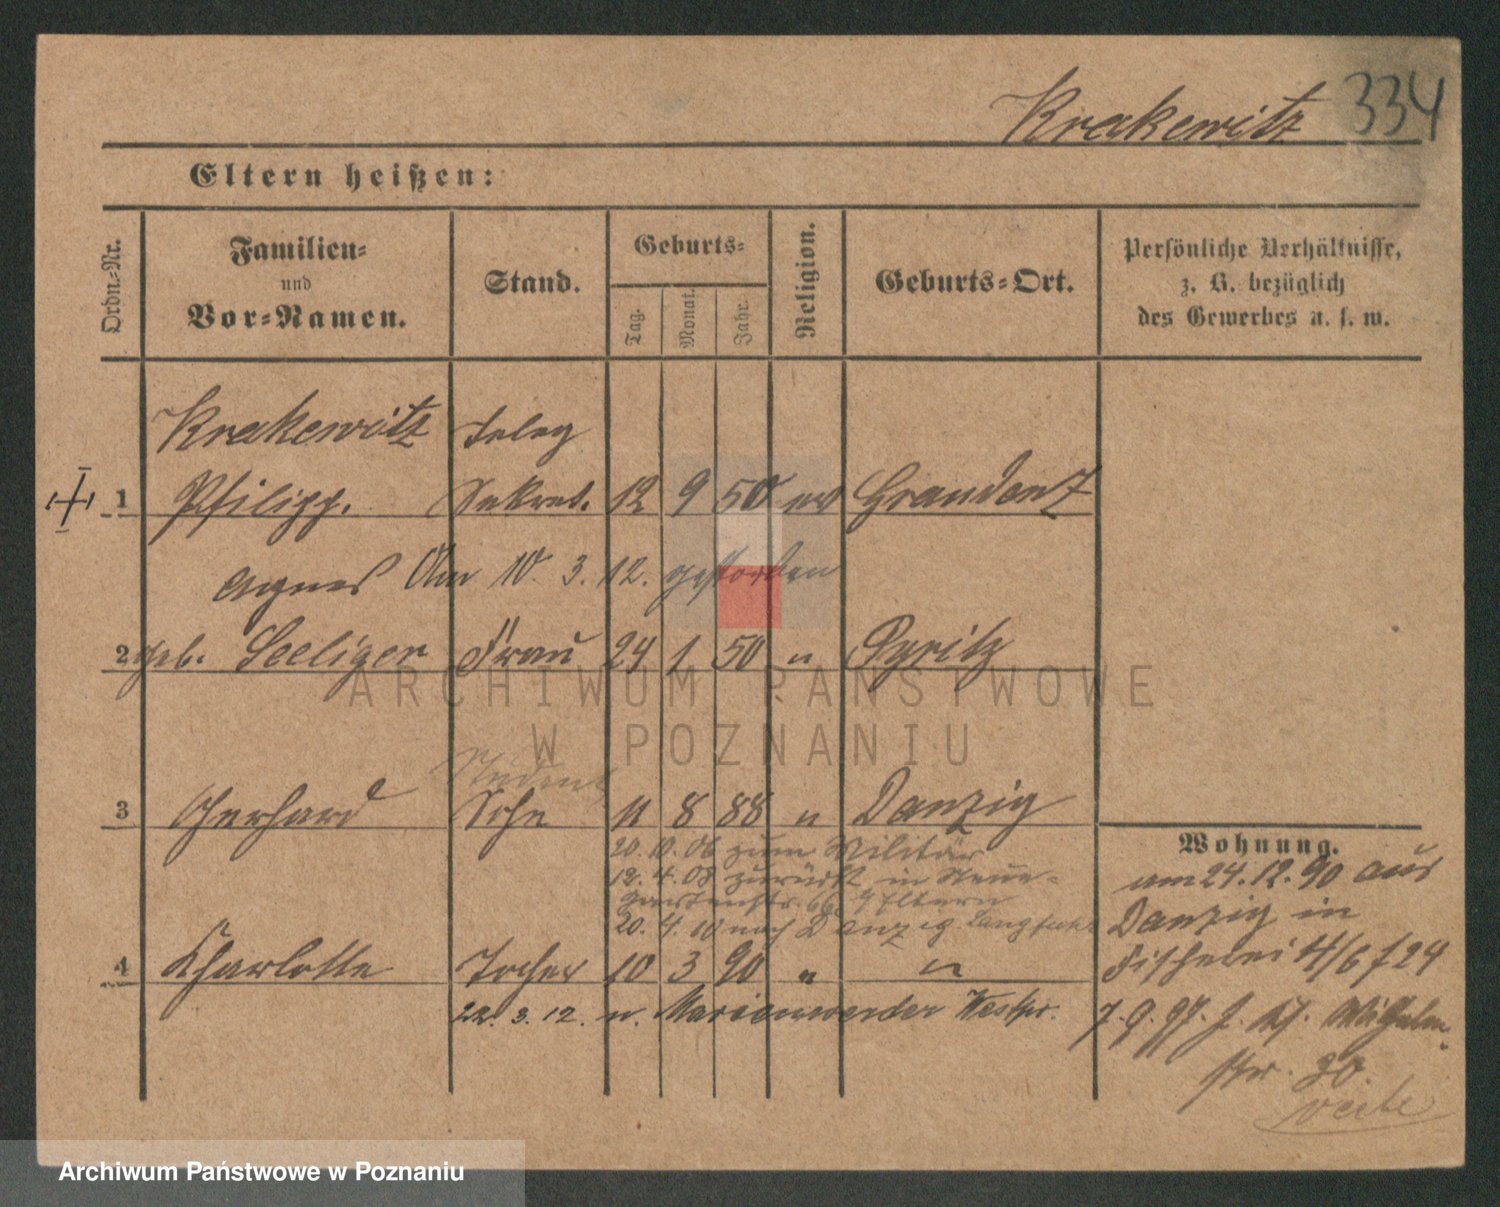 Krakewitz 334
Eltern heißen:
Ordn.-Nr.
Familien-
und
Vor-Namen.
Stand.
Geburts-
Tag.
Monat.
Jahr.
Religion.
Geburts-Ort.
Persönliche Verhältnisse,
z. B. bezüglich
des Gewerbes u. s. w.
Krakewitz Teleg
1 Philipp. Sekret. 12 9 50 ev Graudenz
Agnes Am 10. 3. 12. gestorben
2 geb. Seeliger Frau 24 1 50 " Pyritz
Student
3 Gerhard Sohn 11 8 88 " Danzig
20. 10. 06 zum Militär
18. 4. 08 zurück in Neue-
Gartenstr. 66 Eltern
20. 4. 10 nach Danzig Langfuhr
4 Charlotte Tochter 10 3 90 " "
22. 3. 12. n. Marienwerder Westpr.
Wohnung.
am 24. 12. 90 aus
Danzig in
Fischerei 4/6 f 24
7. 9. 97. Wilhelm-
str. 30.
ARCHIWUM PAŃSTWOWE
W POZNANIU
Archiwum Państwowe w Poznaniu